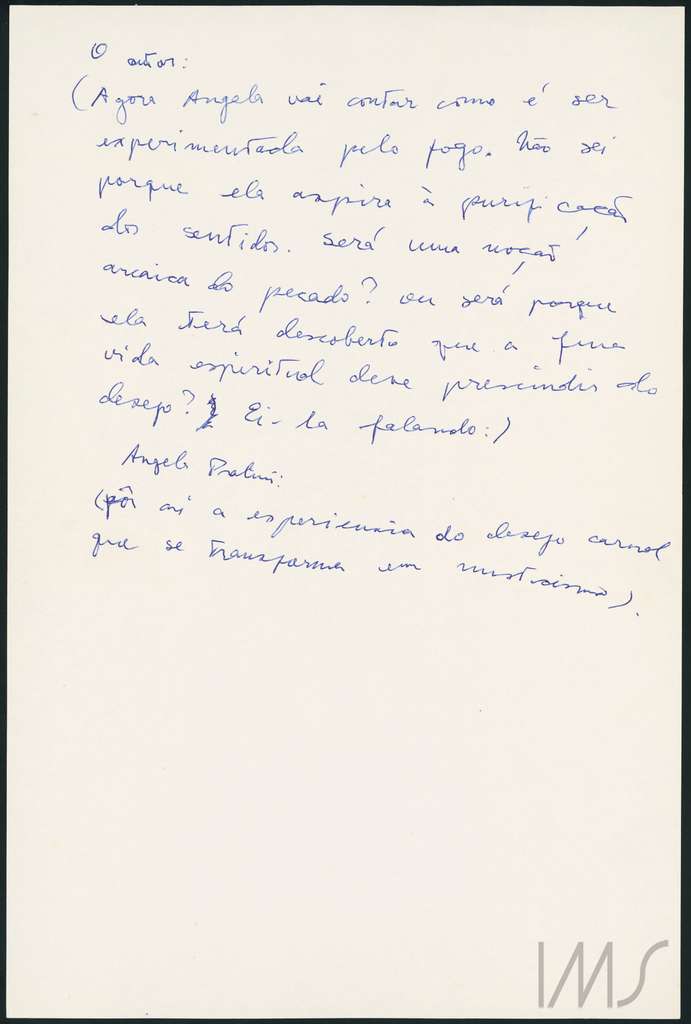 O autor:
(Agora Angela vai contar como é ser
experimentada pelo fogo. Não sei
porque ela aspira à purificação
dos sentidos. Será uma noção
arcaica do pecado? ou será porque
ela terá descoberto que a fina
vida espiritual deve prescindir do
desejo? Ei-la falando:)
Angela Pralini:
(pôr aí a experiencia do desejo carnal
que se transforma em misticismo).
IMS